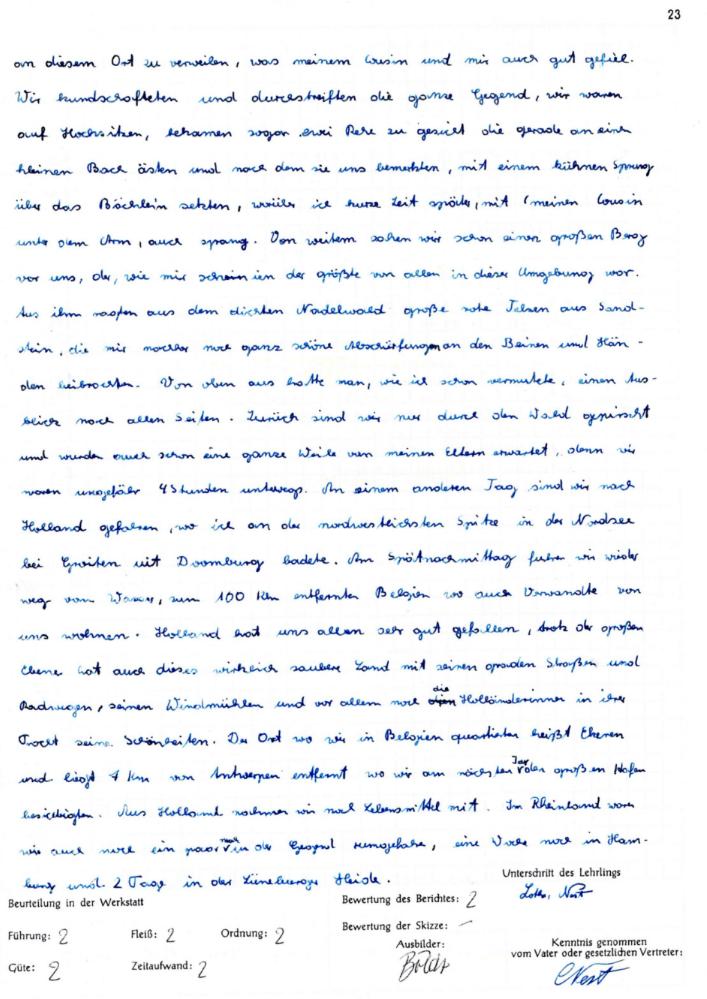 23
an diesem Ort zu verweilen, was meinem Cousin und mir auch gut gefiel.
Wir kundschafteten und durchstreiften die ganze Gegend, wir waren
auf Hochsitzen, bekamen sogar zwei Rehe zu gesicht die gerade an einem
kleinen Bach ästen und nach dem sie uns bemerkten, mit einem kühnen Sprung
über das Bächlein setzten, worüber ich kurze Zeit später, mit meinen Cousin
unter dem Arm, auch sprang. Von weitem sahen wir schon einen großen Berg
vor uns, der, wie mir schien der größte von allen in dieser Umgebung war.
Aus ihm ragten aus dem dichten Nadelwald große rote Felsen aus Sand-
stein, die mir nachher noch ganz schöne Abschürfungen an den Beinen und Hän-
den beibrachten. Von oben aus hatte man, wie ich schon vermutete, einen Aus-
blick nach allen Seiten. Zurück sind wir nur durch den Wald gepirscht
und wurden auch schon eine ganze Weile von meinen Eltern erwartet, denn wir
waren ungefähr 4 Stunden unterwegs. An einem anderen Tag sind wir nach
Holland gefahren, wo ich an der nordwestlichsten Spitze in der Nordsee
bei Doomburg badete. Am Spätnachmittag fuhren wir wieder
weg vom Wasser, zum 100 Km entfernten Belgien wo auch Verwandte von
uns wohnen. Holland hat uns allen sehr gut gefallen, trotz der großen
Ebene hat auch dieses wirklich saubere Land mit seinen geraden Straßen und
Radwegen, seinen Windmühlen und vor allem noch die Holländerinnen in ihrer
Tracht seine Schönheiten. Der Ort wo wir in Belgien quartierten heißt Ekeren
und liegt 4 Km von Antwerpen entfernt wo wir am nächsten Tag den großen Hafen
besichtigten. Aus Holland nahmen wir noch Lebensmittel mit. Im Rheinland waren
wir auch noch ein paar in der Gegend rumgefahren, eine Woche noch in Ham-
burg und 2 Tage in der Lüneburger Heide.
Unterschrift des Lehrlings
Beurteilung in der Werkstatt
Bewertung des Berichtes: 2
Führung: 2 Fleiß: 2 Ordnung: 2
Bewertung der Skizze: –
Ausbilder:
Kenntnis genommen
vom Vater oder gesetzlichen Vertreter:
Güte: 2 Zeitaufwand: 2